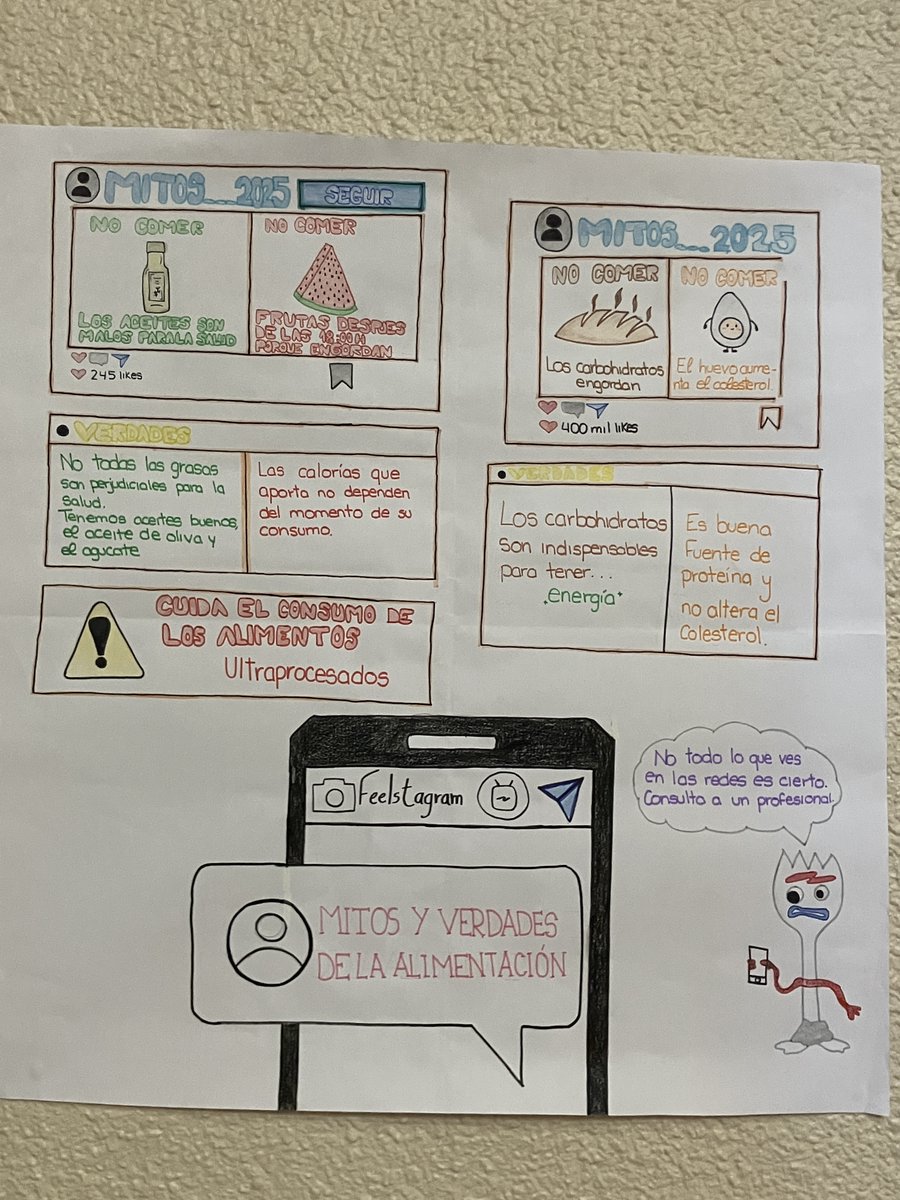 MITOS__2025 SEGUIR
NO COMER
LOS ACEITES SON
MALOS PARA LA SALUD
NO COMER
FRUTAS DESPUES
DE LAS 18:00H
PORQUE ENGORDAN
245 likes
VERDADES
No todas las grasas
son perjudiciales para la
salud.
Tenemos aceites buenos,
el aceite de oliva y
el agucate
Las calorías que
aporta no dependen
del momento de su
consumo.
CUIDA EL CONSUMO DE
LOS ALIMENTOS
Ultraprocesados
MITOS__2025
NO COMER
Los carbohidratos
engordan
NO COMER
El huevo aume-
nta el colesterol.
400 mil likes
VERDADES
Los carbohidratos
son indispensables
para tener...
energía
Es buena
Fuente de
proteína y
no altera el
Colesterol.
Feelstagram
MITOS Y VERDADES
DE LA ALIMENTACIÓN
No todo lo que ves
en las redes es cierto.
Consulta a un profesional.